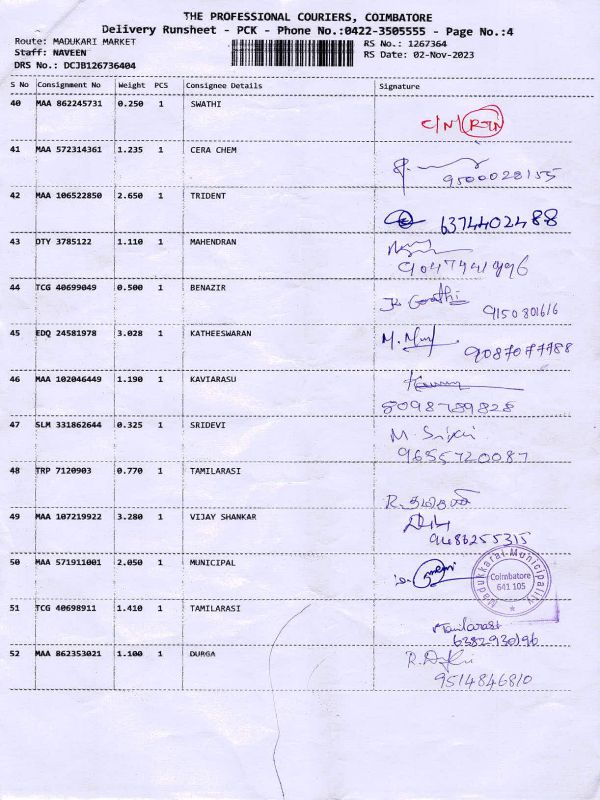 THE PROFESSIONAL COURIERS, COIMBATORE
Delivery Runsheet - PCK - Phone No.:0422-3505555 - Page No.:4
Route: MADUKARI MARKET
RS No.: 1267364
Staff: NAVEEN
RS Date: 02-Nov-2023
DRS No.: DCJB126736404
S No Consignment No Weight PCS Consignee Details Signature
40 MAA 862245731 0.250 1 SWATHI
C/N/ RTN
41 MAA 572314361 1.235 1 CERA CHEM
9500028155
42 MAA 106522850 2.650 1 TRIDENT
6374402488
43 DTY 3785122 1.110 1 MAHENDRAN
9047741996
44 TCG 40699049 0.500 1 BENAZIR
9150801616
45 EDQ 24581978 3.028 1 KATHEESWARAN
9087077788
46 MAA 102046449 1.190 1 KAVIARASU
8098789828
47 SLM 331862644 0.325 1 SRIDEVI
9655720087
48 TRP 7120903 0.770 1 TAMILARASI
49 MAA 107219922 3.280 1 VIJAY SHANKAR
9486255315
50 MAA 571911001 2.050 1 MUNICIPAL
Madukkarai Municipality
Coimbatore
641 105
51 TCG 40698911 1.410 1 TAMILARASI
Tamilarasi
6382930196
52 MAA 862353021 1.100 1 DURGA
9514846810